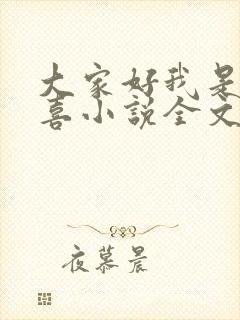 大家好我是
喜小说全文
夜慕晨